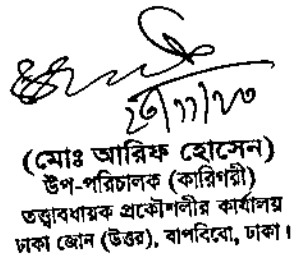 ২৩/১১/২৩
(মোঃ আরিফ হোসেন)
উপ-পরিচালক (কারিগরী)
তত্ত্বাবধায়ক প্রকৌশলীর কার্যালয়
ঢাকা জোন (উত্তর), বাপবিবো, ঢাকা।